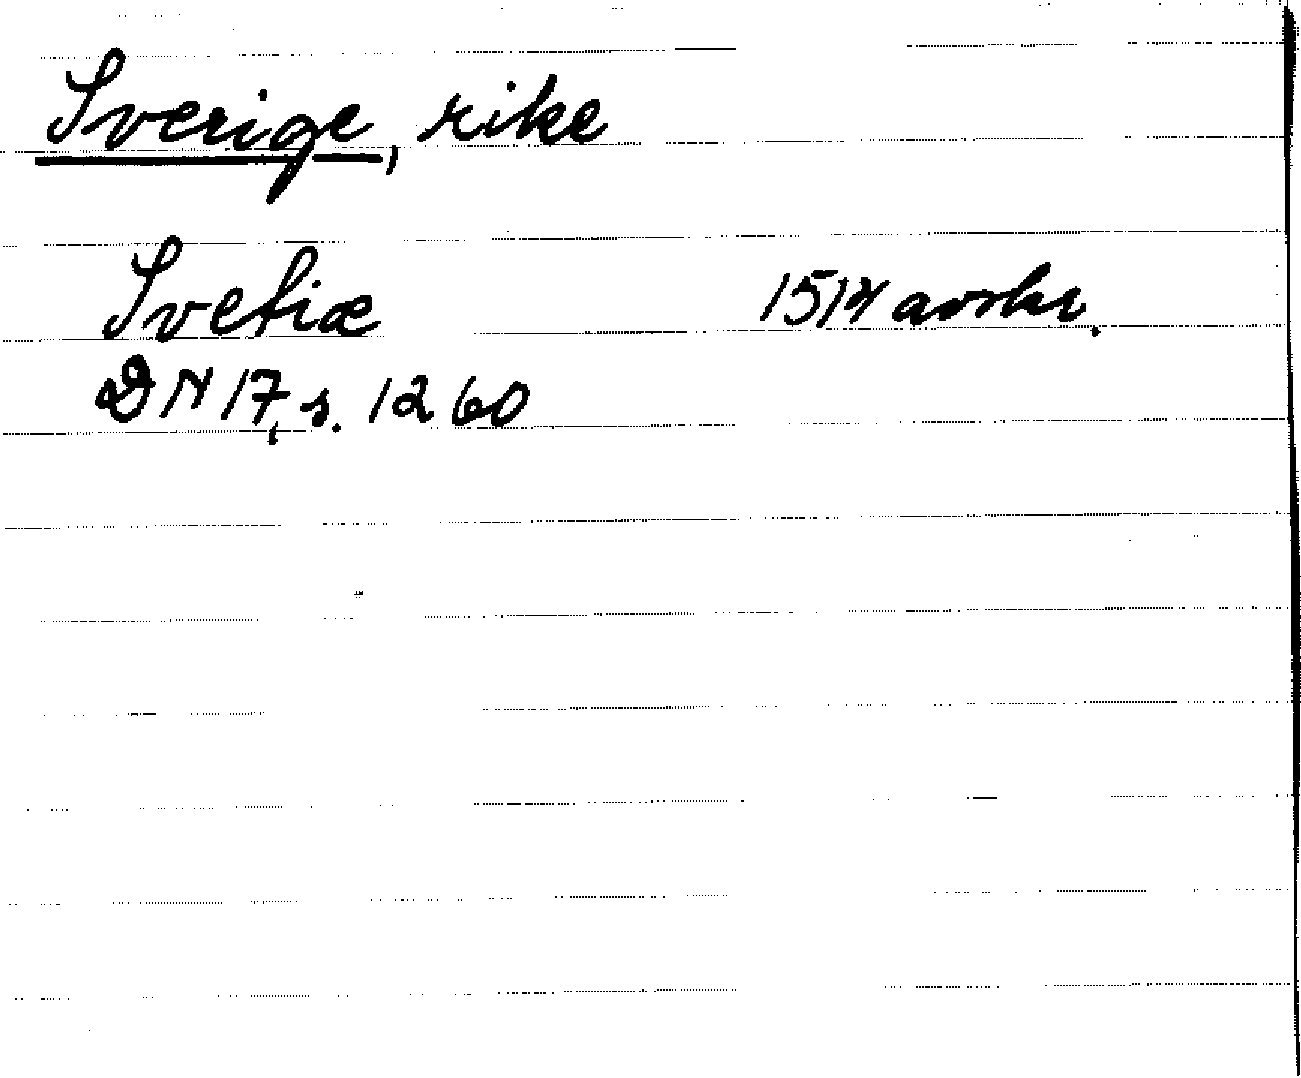 Sverige, rike
Svetiæ 1514 avskr.
DN 17, s. 1260